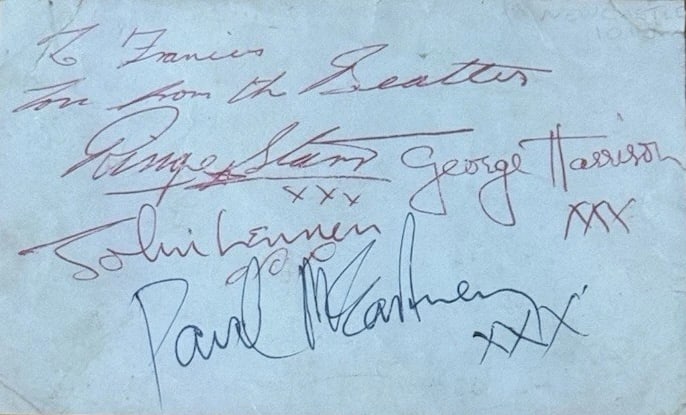 NEWCASTLE
To Frances
love from the Beatles
Ringo Starr George Harrison
xxx
xxx
John Lennon
Paul McCartney
xxx